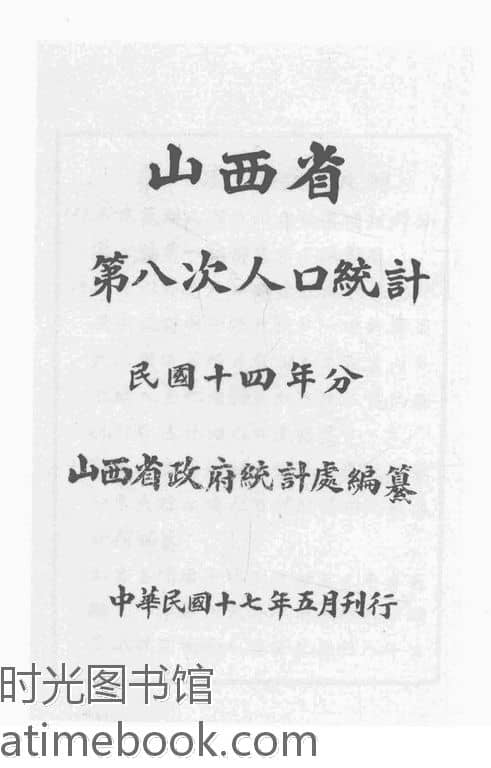 山西省
第八次人口統計
民國十四年分
山西省政府統計處編纂
中華民國十七年五月刊行
时光图书馆
atimebook.com